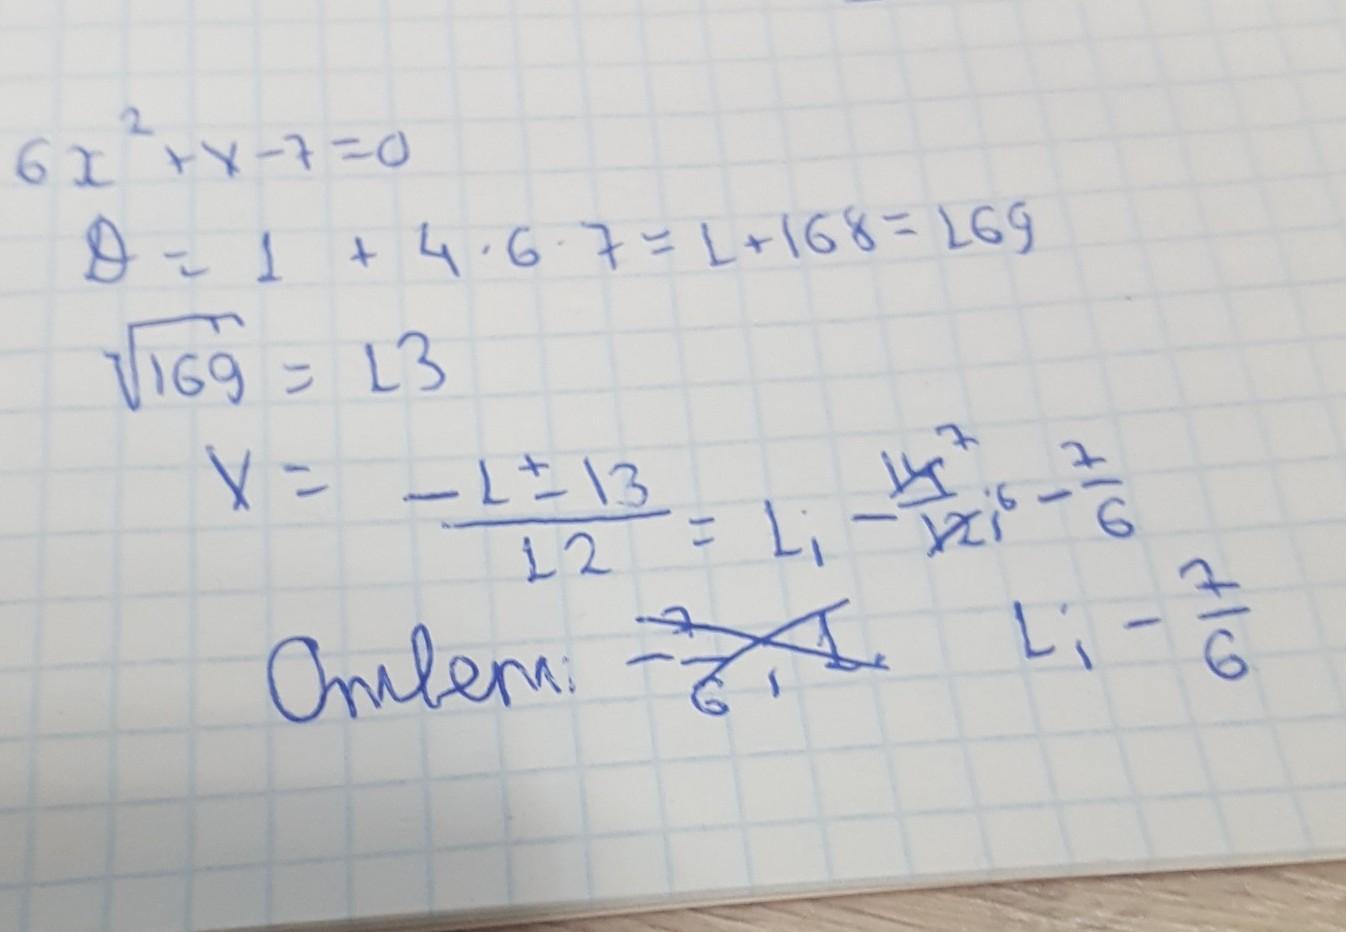 6x² + x - 7 = 0
D = 1 + 4 · 6 · 7 = 1 + 168 = 169
√169 = 13
x = (-1 ± 13)/12 = 1; -14/12; 7 6 -7/6
Ответ: -7/6; 1 1; -7/6